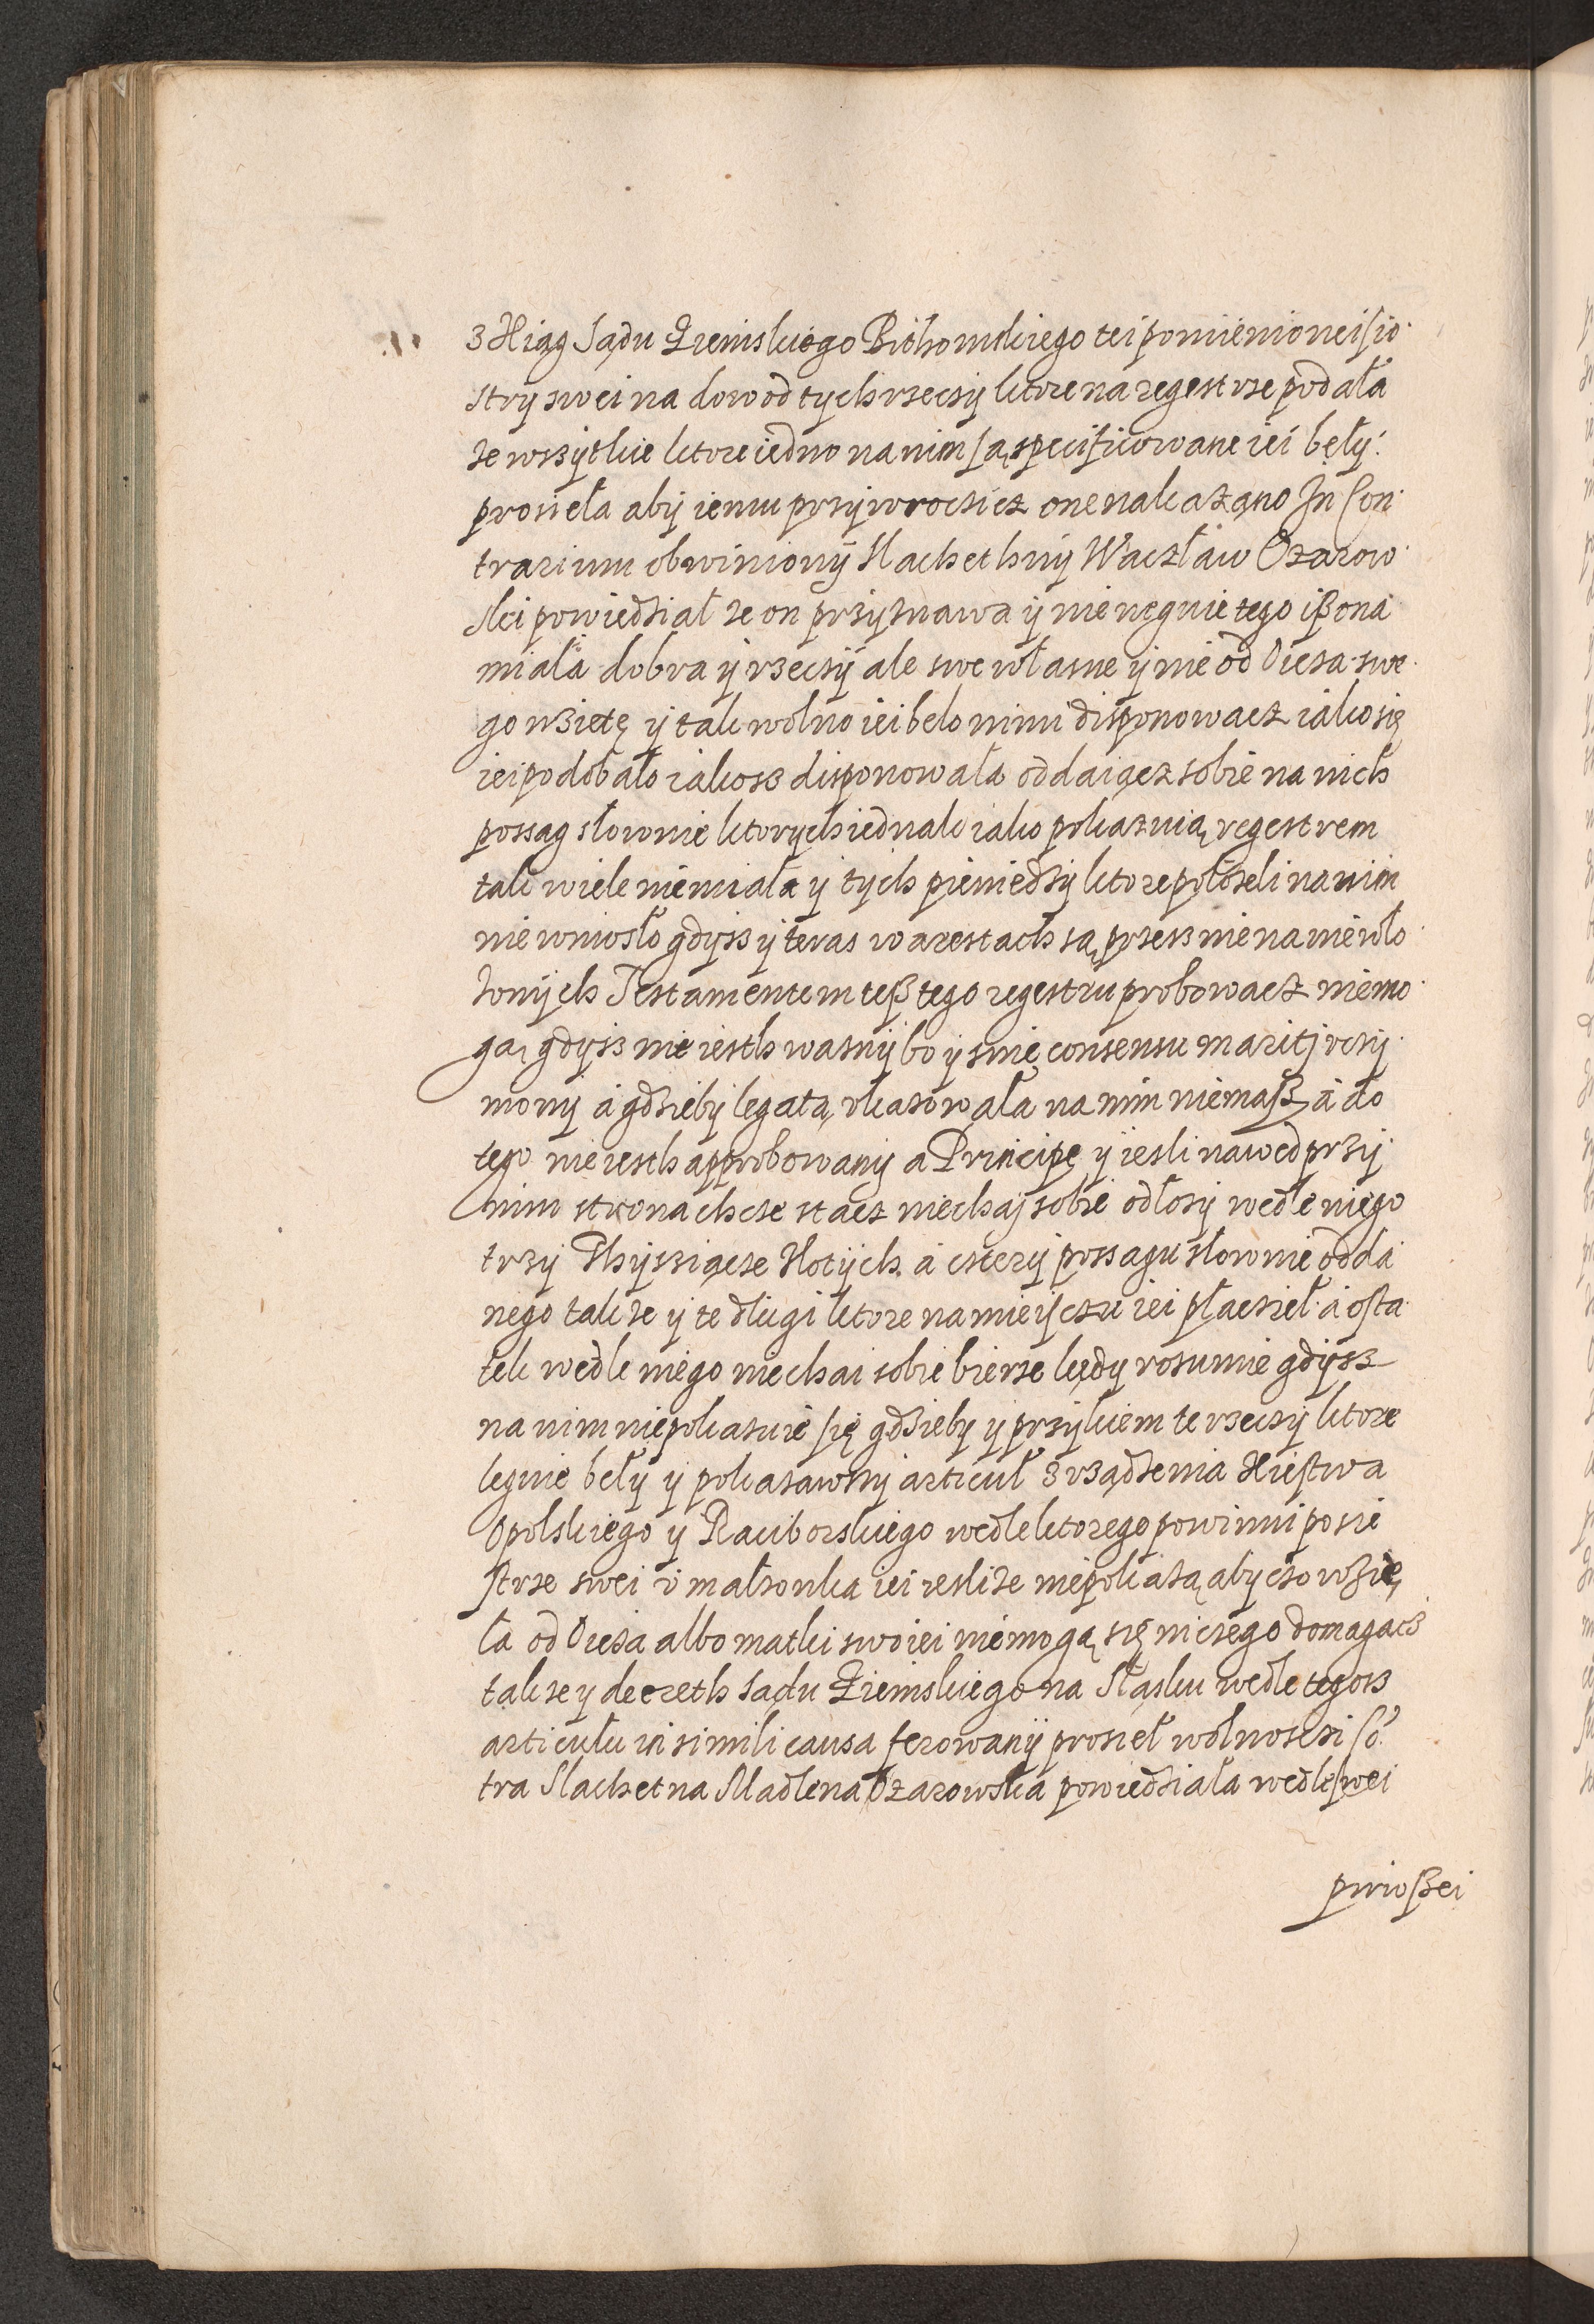 3 Xiąg Sądu Ziemskiego Bithomskiego tei pomienionei sio
stry swei na dowod tych rzeczy ktore na regestrze podała
ze wszytkie ktore iedno na nim są specificowane iei beły
prosieła aby iemu przywrocsicz one nakazano In Con
trarium obwiniony Slachethny Waczław Ozarow
ski powiedział ze on przyznawa y nie neguie tego iß ona
miała dobra y rzeczy ale swe własne y nie od Oicza swe
go wzietę y tak wolno iei beło nimi disponowacz iako się
iei podobało iakosz disponowała oddaiącz sobie na nich
possag słownie ktorych iednak iako pokazuią regestrem
tak wiele nie miała y tych pieniedzy ktore połozeli na nim
nie wniosło gdysz y teras w arestach są przesz nie na nie wło
zonych Testamentem teß tego regestru probowacz nie mo
gą, gdysz nie iesth wazny bo y sinę consensu mariti vczy
niony a gdzieby legatą vkazowała na nim niemaß a do
tego nie iesth approbowany a Principe y iesli nawed przy
nim strona chcze stacz niechaj sobie odłozy wedle niego
trzy Thyssiącze złotych a cztery possagu słownie odda
nego takze y te długi ktore na mieyczu iei płacziel a osta
tek wedle niego niechai sobie bierze kędy rozumie gdysz
na nim nie pokazuie się gdzieby y przy kiem te rzeczy ktore
leguie beły y pokazawszy articuł z rządzenia Xięstwa
Opolskiego y Raciborskiego wedle ktorego powinni po sie
strze swei v małzonka iei iesli ze nie pokazą aby czo wzię
ła od Oicza albo matki swoiei nie mogą się niczego domagacz
takze y decreth Sądu Ziemskiego na Sląsku wedle tegosz
articułu in simili causa ferowany prosieł wolnosczi Co
tra Slachetna Madlena Ozarowska powiedziała wedle swei
pirwßei